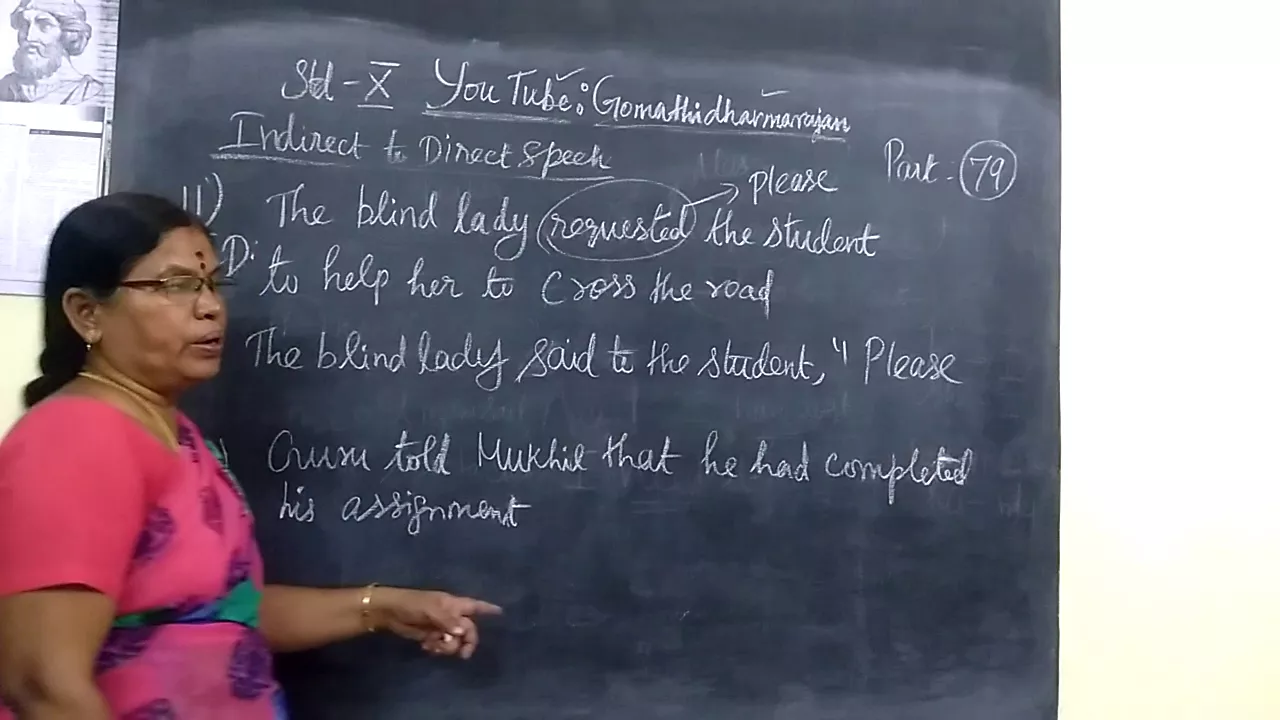 Std - X YouTube: Gomathidharmarajan
Indirect to Direct Speech
Part: 79
please
11) The blind lady requested the student
to help her to cross the road
D:
The blind lady said to the student, " Please
Guru told Mukhil that he had completed
his assignment